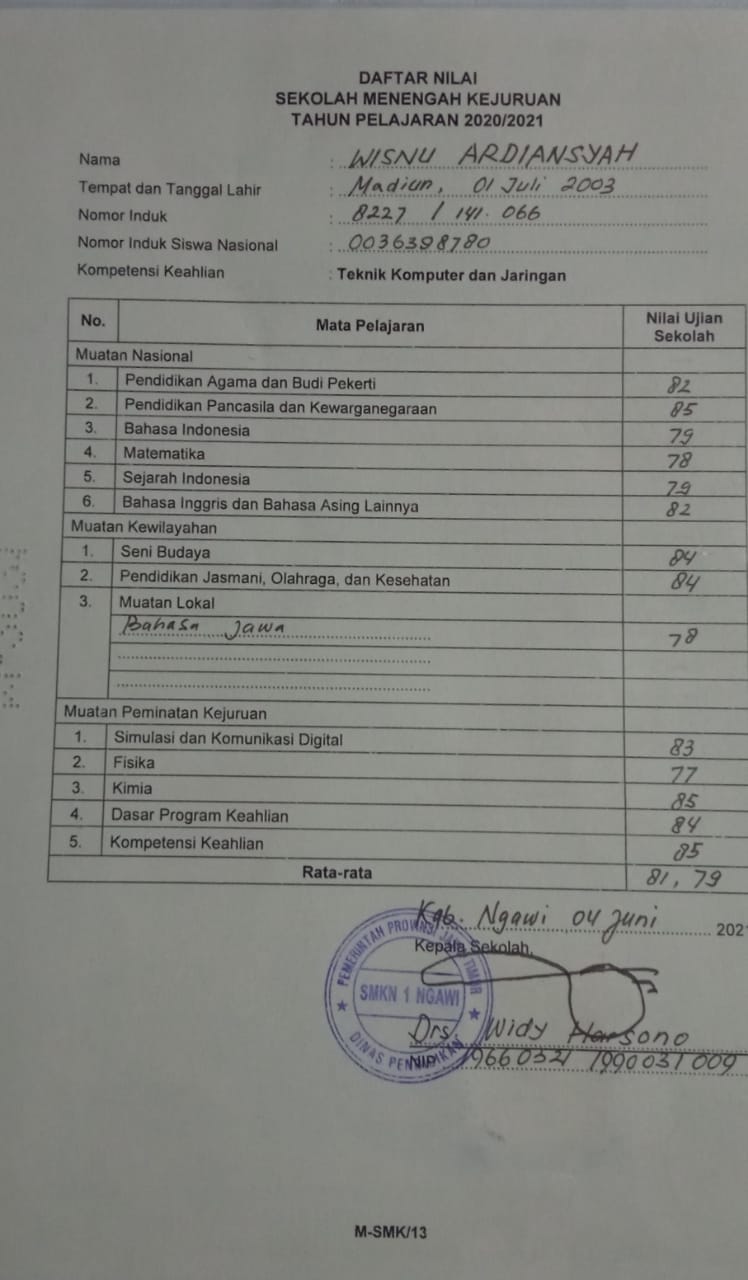 DAFTAR NILAI
SEKOLAH MENENGAH KEJURUAN
TAHUN PELAJARAN 2020/2021
Nama : WISNU ARDIANSYAH
Tempat dan Tanggal Lahir : Madiun, 01 Juli 2003
Nomor Induk : 8227 / 141.066
Nomor Induk Siswa Nasional : 0036398780
Kompetensi Keahlian : Teknik Komputer dan Jaringan
No. Mata Pelajaran Nilai Ujian Sekolah
Muatan Nasional
1. Pendidikan Agama dan Budi Pekerti 82
2. Pendidikan Pancasila dan Kewarganegaraan 85
3. Bahasa Indonesia 79
4. Matematika 78
5. Sejarah Indonesia 79
6. Bahasa Inggris dan Bahasa Asing Lainnya 82
Muatan Kewilayahan
1. Seni Budaya 84
2. Pendidikan Jasmani, Olahraga, dan Kesehatan 84
3. Muatan Lokal
Bahasa Jawa 78
Muatan Peminatan Kejuruan
1. Simulasi dan Komunikasi Digital 83
2. Fisika 77
3. Kimia 85
4. Dasar Program Keahlian 84
5. Kompetensi Keahlian 85
Rata-rata 81,79
Kab. Ngawi 04 Juni 2021
Kepala Sekolah,
PEMERINTAH PROVINSI JAWA TIMUR
SMKN 1 NGAWI
DINAS PENDIDIKAN
Drs. Widy Harsono
NIP 19660321 199003 1 009
M-SMK/13